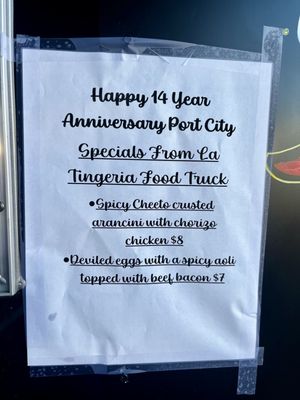 Happy 14 Year
Anniversary Port City
Specials From La
Tingeria Food Truck
•Spicy Cheeto crusted
arancini with chorizo
chicken $8
•Deviled eggs with a spicy aoli
topped with beef bacon $7